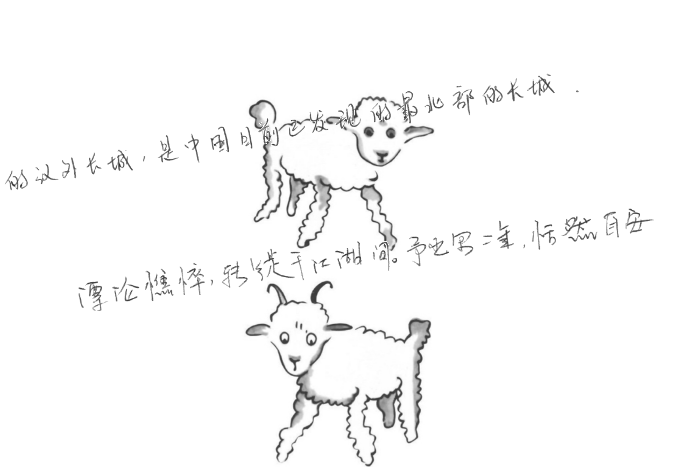 的汉外长城，是中国目前已发现的最北部的长城.
漂沦憔悴，转徙于江湖间。予出官二年，恬然自安